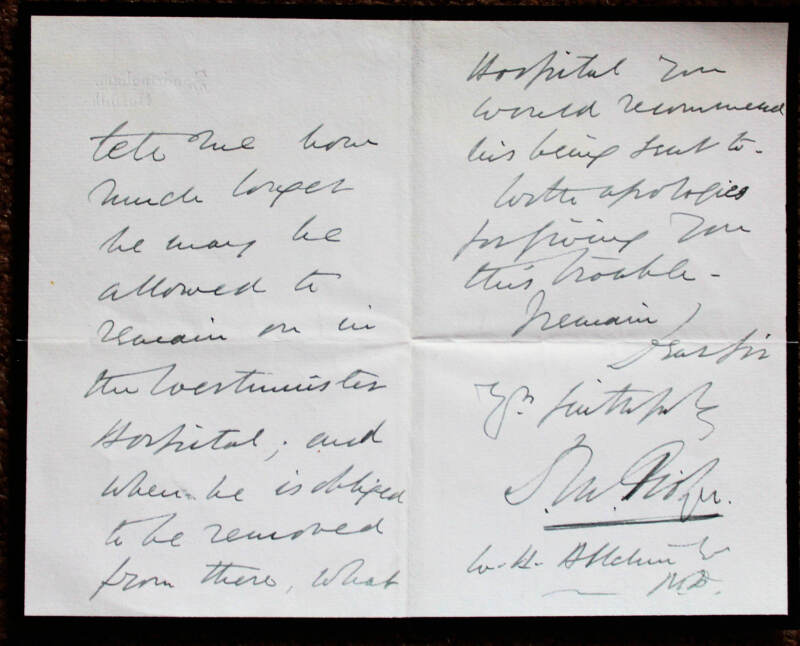 tell me how
much longer
he may be
allowed to
remain on in
the Westminster
Hospital; and
when he is obliged
to be removed
from there, what
Hospital you
would recommend
his being sent to -
With apologies
for giving you
this trouble -
I remain
Dear Sir
Yrs faithfully
W. H. Allchin Esq
M.D.